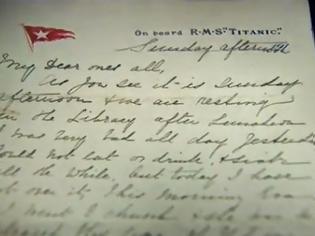 On board R·M·S "TITANIC."
Sunday afternoon
My Dear ones all,
As you see it is Sunday
afternoon & we are resting
in the Library after Luncheon
I was very bad all day Yesterday
could not eat or drink & sick
all the while, but today I have
got over it, this morning Eva
& I went to church & she was so